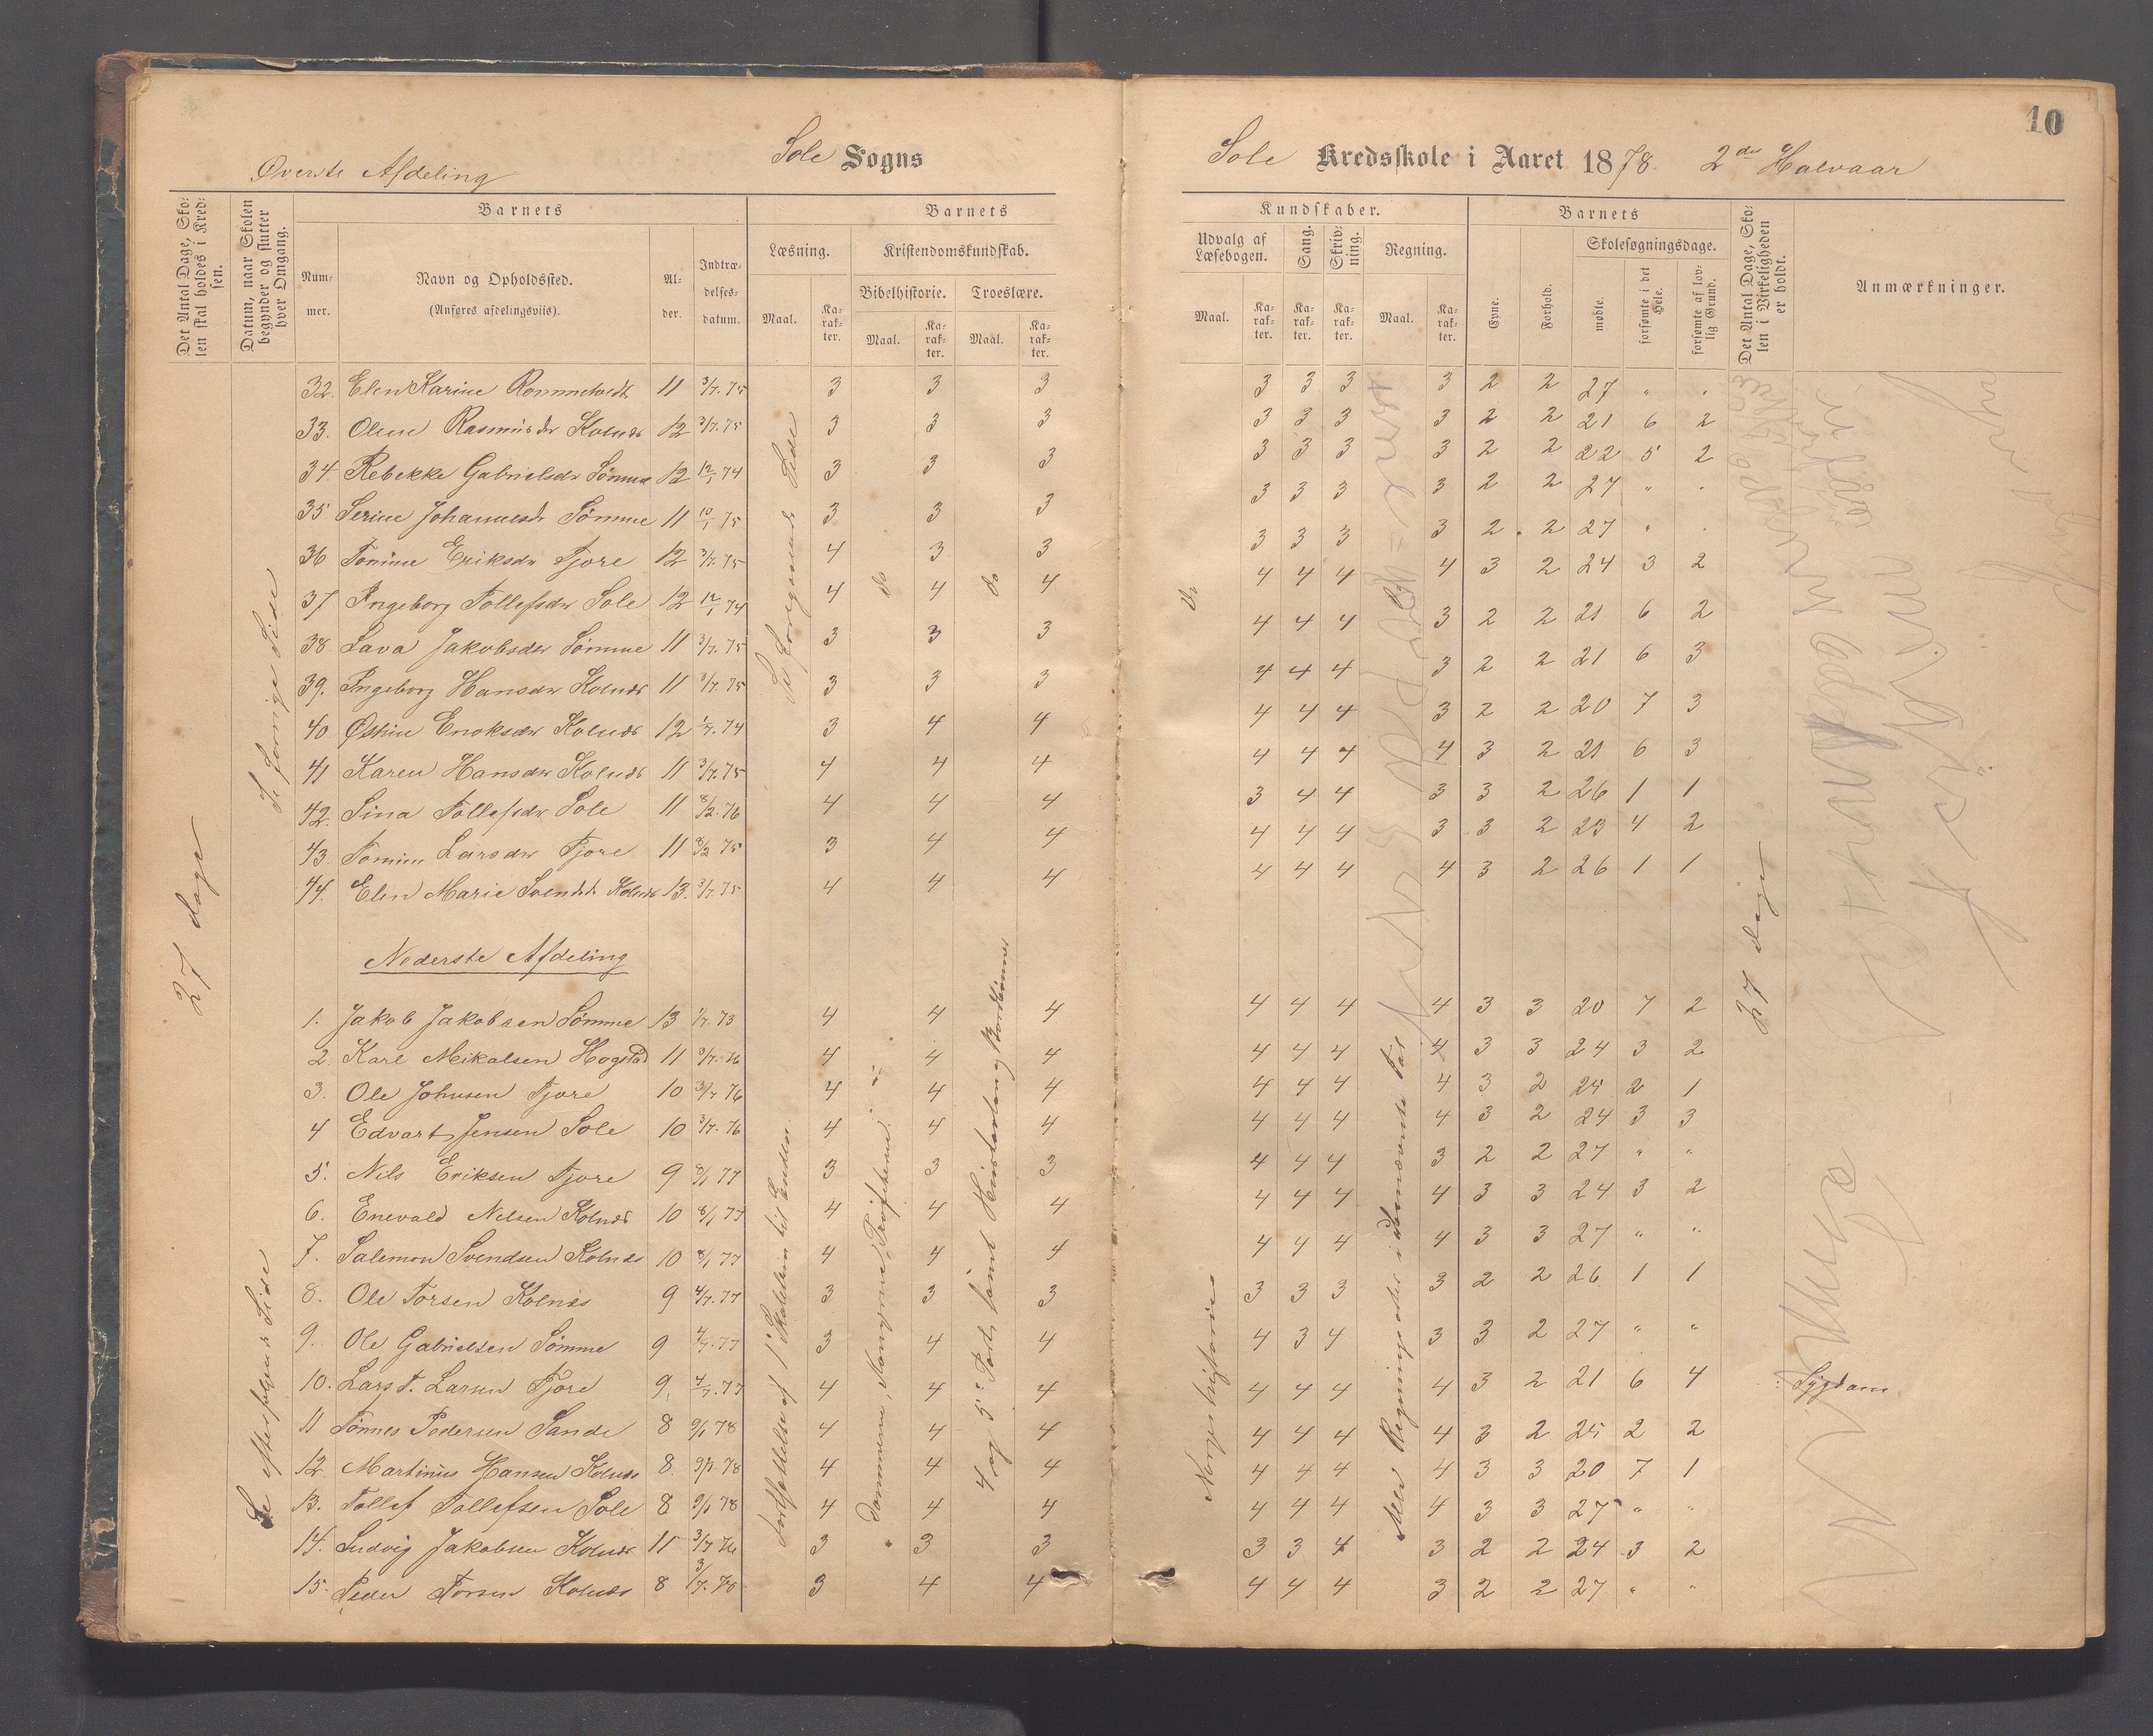 10
Øverste Afdeling Sole Sogns
Sole Kredsskole i Aaret 1878. 2det Halvaar
Det Antal Dage, Skolen skal holdes i Kredsen.
Datum, naar Skolen begynder og slutter hver Omgang.
Barnets
Nummer.
Navn og Opholdssted.
(Anføres afdelingsviis).
Alder.
Indtrædelsesdatum.
Barnets
Læsning.
Kristendomskundskab.
Bibelhistorie. Troeslære.
Maal. Karakter. Maal. Karakter. Maal. Karakter.
Kundskaber.
Udvalg af Læsebogen. Sang. Skrivning. Regning.
Maal. Karakter. Karakter. Karakter. Maal. Karakter.
Barnets
Evne. Forhold.
Skolesøgningsdage.
mødte. forsømte i det Hele. forsømte af lovlig Grund.
Det Antal Dage, Skolen i Virkeligheden er holdt.
Anmærkninger.
27 dage
Se forrige Side
Se foregaaende Side
do do
32. Elen Karine 11 3/7. 75 3 3 3 3 3 3 3 2 2 27 " "
33. Oline Rasmusdr Kolnes 12 3/7. 75 3 3 3 3 3 3 3 2 2 21 6 2
34. Rebekke Gabrielsdr Sömme 12 12/1 74 3 3 3 3 3 3 3 2 2 22 5 2
35 Serine Johannesdr Sömme 11 10/1 75 3 3 3 3 3 3 3 2 2 27 " "
36 Tomine Eriksdr Tjore 12 3/7. 75 4 3 3 3 3 3 3 2 2 27 " "
37 Ingeborg Tollefsdr Sole 12 12/1 74 4 4 4 4 4 4 4 3 2 24 3 2
38. Lava Jakobsdr Sömme 11 3/7. 75 3 3 3 4 4 4 3 2 2 21 6 2
39. Ingeborg Hansdr Kolnes 11 3/7. 75 3 3 3 4 4 4 3 2 2 21 6 3
40 Østine Enoksdr Kolnes 12 1/7. 74 3 4 4 4 4 4 3 2 2 20 7 3
41 Karen Hansdr Kolnes 11 3/7. 75 4 4 4 4 4 4 4 3 2 21 6 3
42. Sina Tollefsdr Sole 11 8/2. 76 4 4 4 3 4 4 3 3 2 26 1 1
43. Tomine Larsdr Tjore 11 8/2 75 3 4 4 4 4 4 3 3 2 23 4 2
44. Elen Marie Svendsdr Kolnes 13. 3/7. 75 4 4 4 4 4 4 4 3 2 26 1 1
Nederste Afdeling
27 dage
Se efterfølgende Side
4 og 5' Part, samt Hustavlen
Norges historie
1. Jakob Jakobsen Sömme 13 1/7. 73 4 4 4 4 4 4 4 3 3 20 7 2
2. Karl Mikalsen Hogstad 11 3/7. 76 4 4 4 4 4 4 4 3 3 24 3 2
3. Ole Johnsen Tjore 10 3/7 76 4 4 4 4 4 4 4 3 2 25 2 1
4 Edvart Jensen Sole 10 3/7. 76 4 4 4 4 4 4 4 3 2 24 3 3
5. Nils Eriksen Tjore 9 8/1 77 3 3 3 4 4 4 3 2 2 27 " "
6. Enevald Nelsen Kolnes 10 8/1 77 4 4 4 4 4 4 4 3 3 24 3 2
7. Salemon Svendsen Kolnes 10 8/1 77 4 4 4 4 4 4 4 3 3 27 " "
8. Ole Torsen Kolnes 9 4/7. 77 3 3 3 3 3 3 3 2 2 26 1 1
9. Ole Gabrielsen Sömme 9 4/7. 77 3 4 4 4 3 4 3 3 2 27 " "
10. Lars T. Larsen Tjore 9. 4/7. 77 4 4 4 4 4 4 4 3 2 21 6 4 Sygdom
11 Tönnes Pedersen Sande 8 9/1 78 4 4 4 4 4 4 4 3 2 25 2 2
12. Martinus Hansen Kolnes 8. 9/1. 78 4 4 4 4 4 4 4 3 3 20 7 1
13. Tollef Tollefsen Sole 8 9/1 78 4 4 4 4 4 4 4 3 3 27 " "
14. Ludvig Jakobsen Kolnes 11 3/7 76 3 3 3 3 3 4 3 2 2 24 3 2
15. Peder Torsen Kolnes 8 3/7. 78 3 4 4 4 4 4 3 2 2 27 " "